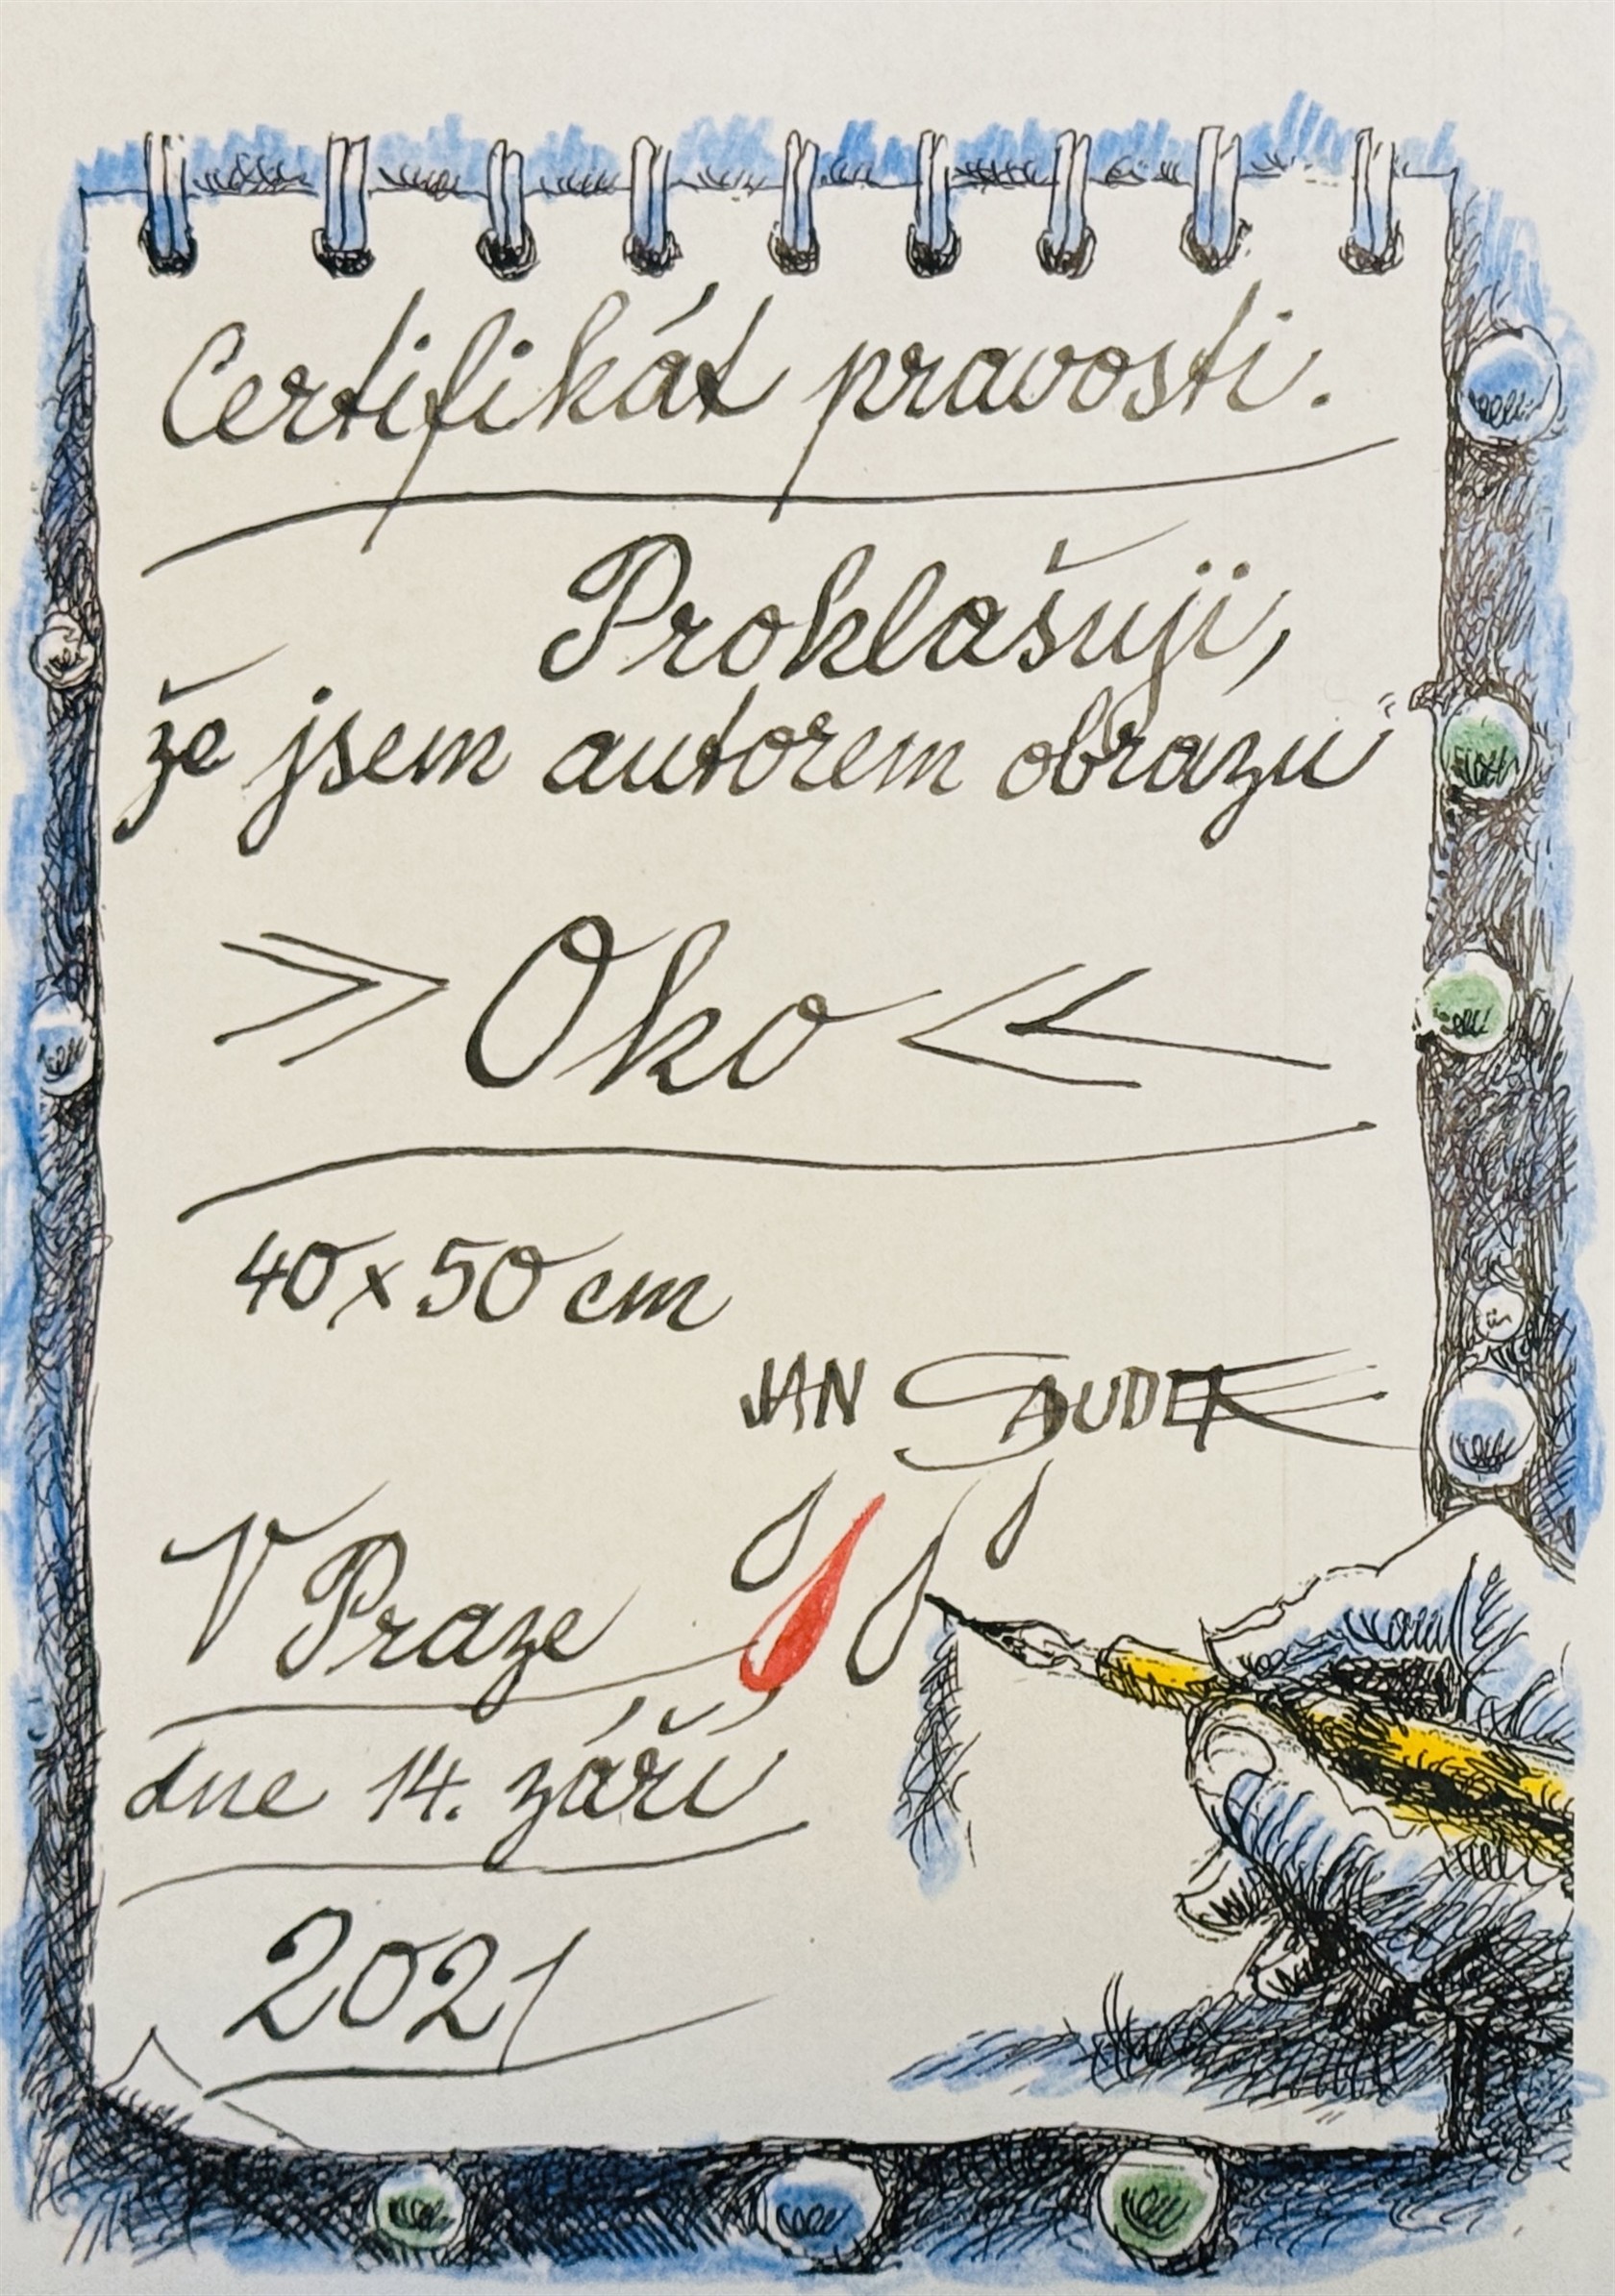 Certifikát pravosti.
Prohlašuji,
že jsem autorem obrazu
>> Oko <<
40 x 50 cm
JAN SAUDEK
V Praze
dne 14. září
2021